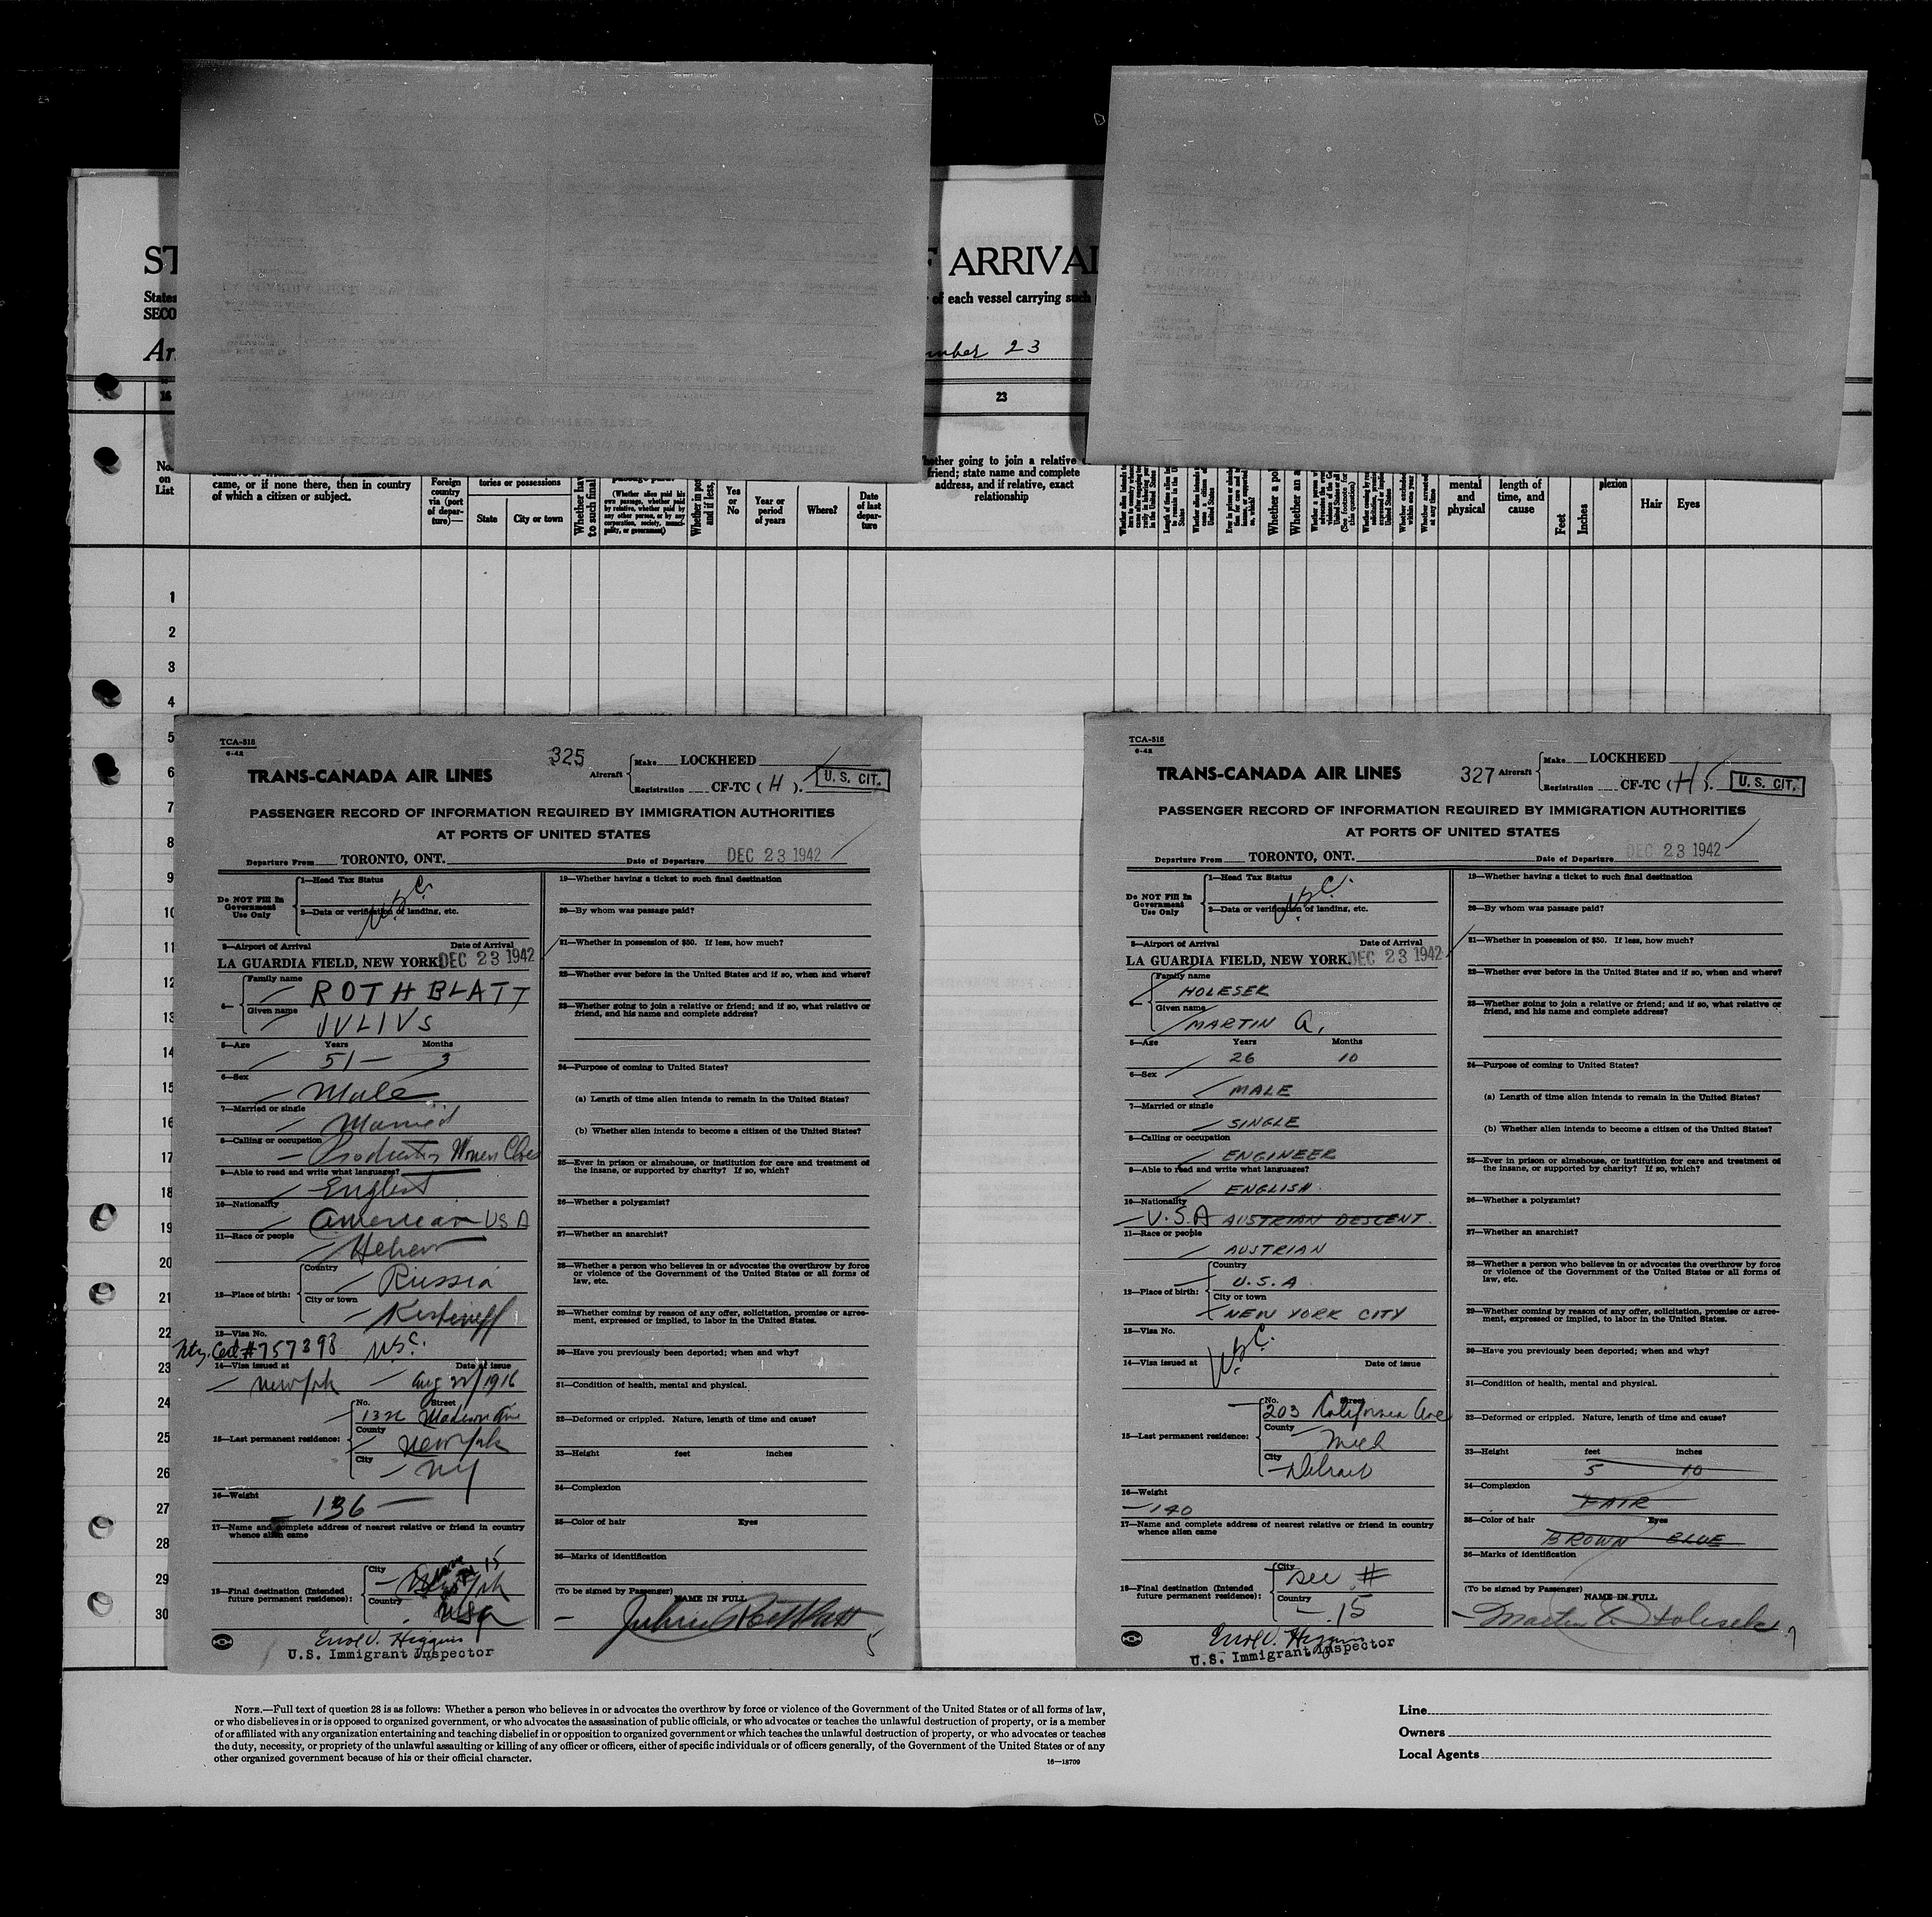 ST
F ARRIVAL
States
of each vessel carrying such
SECO
Ar
mber 23
16
23
No.
on
List
came, or if none there, then in country
of which a citizen or subject.
Foreign
country
via (port
of depar-
ture)—
tories or possessions
State
City or town
Whether hav
to such final
passage paid?
(Whether alien paid his
own passage, whether paid
by relative, whether paid by
any other person, or by any
corporation, society, munici-
pality, or government)
Whether in po
and if less,
Yes
or
No
Year or
period
of years
Where?
Date
of last
depar-
ture
hether going to join a relative
friend; state name and complete
address, and if relative, exact
relationship
Whether a po
Whether an a
mental
and
physical
length of
time, and
cause
Feet
Inches
plexion
Hair
Eyes
1
2
3
4
5
6
7
8
9
10
11
12
13
14
15
16
17
18
19
20
21
22
23
24
25
26
27
28
29
30
TCA-515
6-42
325
TRANS-CANADA AIR LINES
Aircraft
Make LOCKHEED
Registration CF-TC ( H ).
U. S. CIT.
PASSENGER RECORD OF INFORMATION REQUIRED BY IMMIGRATION AUTHORITIES
AT PORTS OF UNITED STATES
Departure From TORONTO, ONT. Date of Departure DEC 23 1942
Do NOT Fill In
Government
Use Only
1—Head Tax Status
U.S.C.
2—Data or verification of landing, etc.
3—Airport of Arrival Date of Arrival
LA GUARDIA FIELD, NEW YORK. DEC 23 1942
4—
Family name
ROTHBLATT
Given name
JULIUS
5—Age Years Months
51 — 3
6—Sex
Male
7—Married or single
Married
8—Calling or occupation
Women
9—Able to read and write what languages?
English
10—Nationality
American USA
11—Race or people
Hebrew
12—Place of birth:
Country
Russia
City or town
Kishineff
13—Visa No.
Ntz. Cert #757398 U.S.C.
14—Visa issued at Date of issue
New York Aug 22/1916
15—Last permanent residence:
No. Street
1322 Madison Ave
County
New York
City
NY
16—Weight
136 —
17—Name and complete address of nearest relative or friend in country
whence alien came
18—Final destination (Intended
future permanent residence):
City
15
Country
USA
Errol V. Higgins
U.S. Immigrant Inspector
19—Whether having a ticket to such final destination
20—By whom was passage paid?
21—Whether in possession of $50. If less, how much?
22—Whether ever before in the United States and if so, when and where?
23—Whether going to join a relative or friend; and if so, what relative or
friend, and his name and complete address?
24—Purpose of coming to United States?
(a) Length of time alien intends to remain in the United States?
(b) Whether alien intends to become a citizen of the United States?
25—Ever in prison or almshouse, or institution for care and treatment of
the insane, or supported by charity? If so, which?
26—Whether a polygamist?
27—Whether an anarchist?
28—Whether a person who believes in or advocates the overthrow by force
or violence of the Government of the United States or all forms of
law, etc.
29—Whether coming by reason of any offer, solicitation, promise or agree-
ment, expressed or implied, to labor in the United States.
30—Have you previously been deported; when and why?
31—Condition of health, mental and physical.
32—Deformed or crippled. Nature, length of time and cause?
33—Height feet inches
34—Complexion
35—Color of hair Eyes
36—Marks of identification
(To be signed by Passenger)
NAME IN FULL
Julius Rothblatt
5
TCA-515
6-42
TRANS-CANADA AIR LINES
327
Aircraft
Make LOCKHEED
Registration CF-TC ( H ).
U. S. CIT.
PASSENGER RECORD OF INFORMATION REQUIRED BY IMMIGRATION AUTHORITIES
AT PORTS OF UNITED STATES
Departure From TORONTO, ONT. Date of Departure DEC 23 1942
Do NOT Fill In
Government
Use Only
1—Head Tax Status
U.S.C.
2—Data or verification of landing, etc.
3—Airport of Arrival Date of Arrival
LA GUARDIA FIELD, NEW YORK. DEC 23 1942
4—
Family name
HOLESEK
Given name
MARTIN A.
5—Age Years Months
26 10
6—Sex
MALE
7—Married or single
SINGLE
8—Calling or occupation
ENGINEER
9—Able to read and write what languages?
ENGLISH
10—Nationality
U.S.A AUSTRIAN DESCENT.
11—Race or people
AUSTRIAN
12—Place of birth:
Country
U.S.A.
City or town
NEW YORK CITY
13—Visa No.
U.S.C.
14—Visa issued at Date of issue
15—Last permanent residence:
No. Street
203 California Ave
County
Mich
City
Detroit
16—Weight
140
17—Name and complete address of nearest relative or friend in country
whence alien came
18—Final destination (Intended
future permanent residence):
City
see #
Country
15
Errol V. Higgins
U.S. Immigrant Inspector
19—Whether having a ticket to such final destination
20—By whom was passage paid?
21—Whether in possession of $50. If less, how much?
22—Whether ever before in the United States and if so, when and where?
23—Whether going to join a relative or friend; and if so, what relative or
friend, and his name and complete address?
24—Purpose of coming to United States?
(a) Length of time alien intends to remain in the United States?
(b) Whether alien intends to become a citizen of the United States?
25—Ever in prison or almshouse, or institution for care and treatment of
the insane, or supported by charity? If so, which?
26—Whether a polygamist?
27—Whether an anarchist?
28—Whether a person who believes in or advocates the overthrow by force
or violence of the Government of the United States or all forms of
law, etc.
29—Whether coming by reason of any offer, solicitation, promise or agree-
ment, expressed or implied, to labor in the United States.
30—Have you previously been deported; when and why?
31—Condition of health, mental and physical.
32—Deformed or crippled. Nature, length of time and cause?
33—Height feet inches
5 10
34—Complexion
FAIR
35—Color of hair Eyes
BROWN BLUE
36—Marks of identification
(To be signed by Passenger)
NAME IN FULL
Martin A. Holesek
7
NOTE.—Full text of question 28 is as follows: Whether a person who believes in or advocates the overthrow by force or violence of the Government of the United States or of all forms of law,
or who disbelieves in or is opposed to organized government, or who advocates the assassination of public officials, or who advocates or teaches the unlawful destruction of property, or is a member
of or affiliated with any organization entertaining and teaching disbelief in or opposition to organized government or which teaches the unlawful destruction of property, or who advocates or teaches
the duty, necessity, or propriety of the unlawful assaulting or killing of any officer or officers, either of specific individuals or of officers generally, of the Government of the United States or of any
other organized government because of his or their official character.
16—18709
Line
Owners
Local Agents